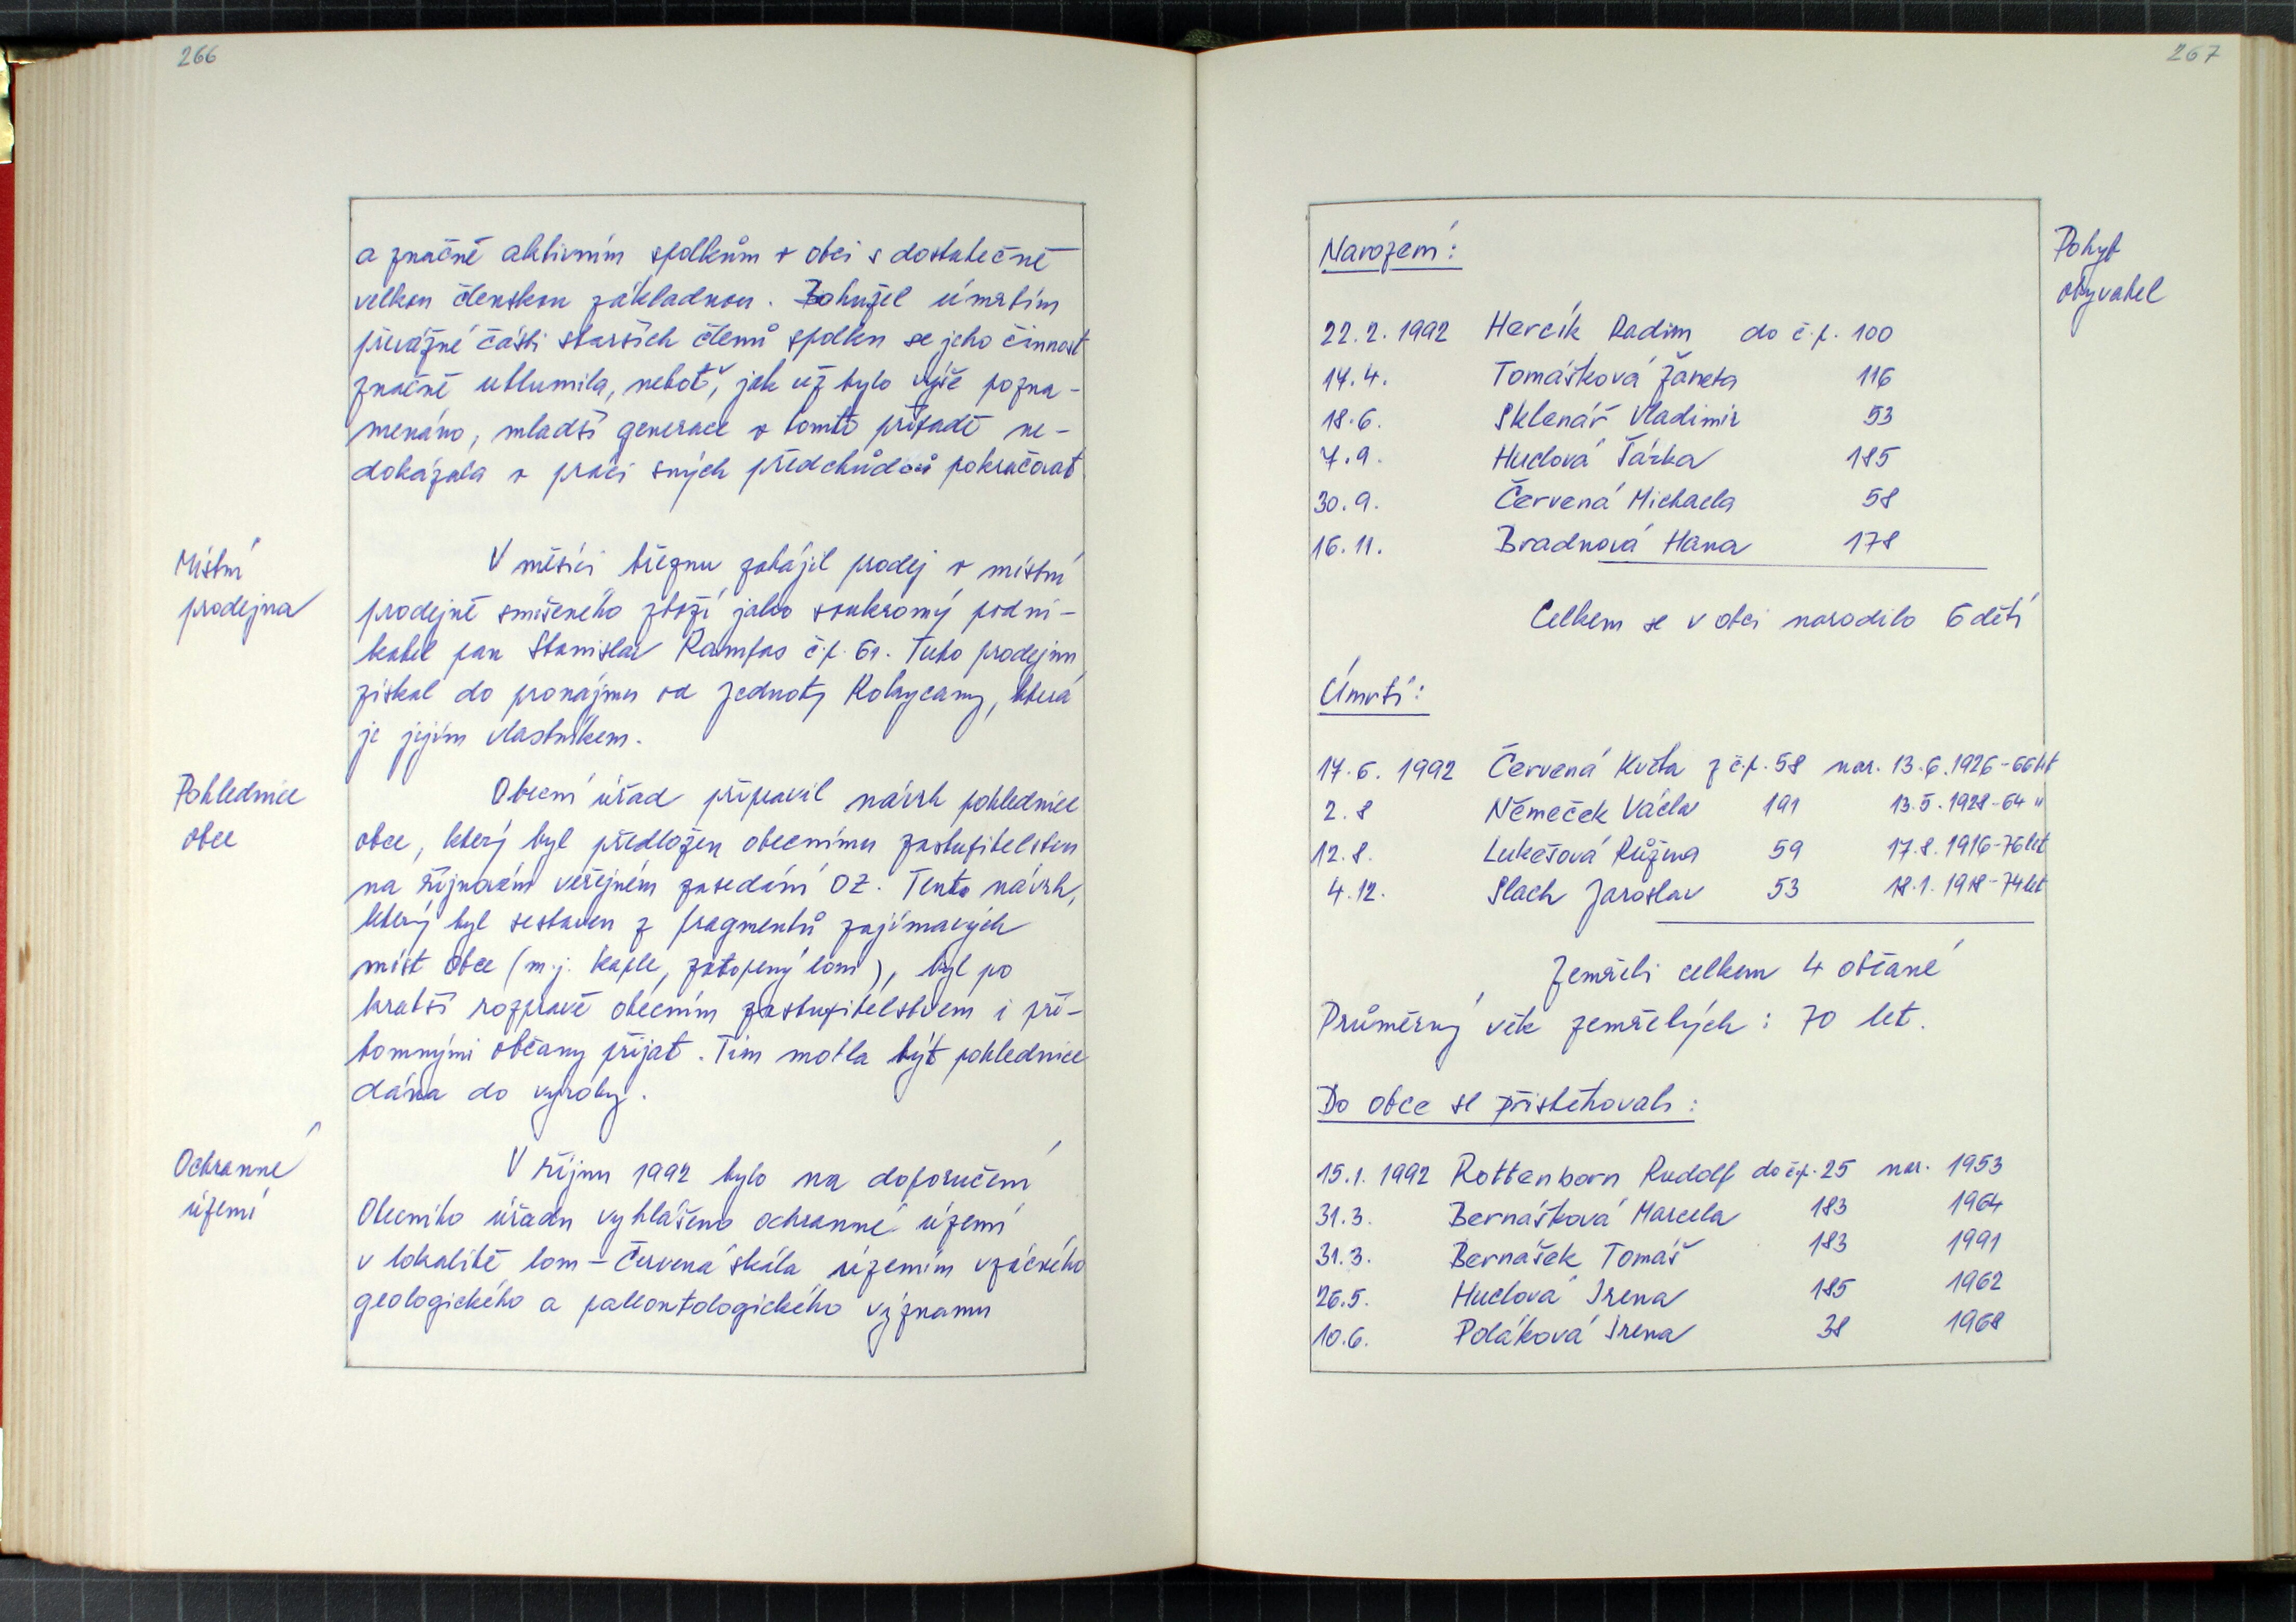 266
a značně aktivním spolkům v obci s dostatečně
velkou členskou základnou. Bohužel úmrtím
převážné části starších členů spolku se jeho činnost
značně utlumila, neboť, jak už bylo výše pozna-
menáno, mladší generace v tomto případě ne-
dokázala v práci svých předchůdců pokračovat
Místní
prodejna
V měsíci březnu zahájil prodej v místní
prodejně smíšeného zboží jako soukromý podni-
katel pan Stanislav Rampas č.p. 61. Tuto prodejnu
získal do pronájmu od Jednoty Rokycany, která
je jejím vlastníkem.
Pohlednice
obce
Obecní úřad připravil návrh pohlednice
obce, který byl předložen obecnímu zastupitelstvu
na říjnovém veřejném zasedání OZ. Tento návrh,
který byl sestaven z fragmentů zajímavých
míst obce (m.j. kaple, zatopený lom), byl po
kratší rozpravě obecním zastupitelstvem i pří-
tomnými občany přijat. Tím mohla být pohlednice
dána do výroby.
Ochranné
území
V říjnu 1992 bylo na doporučení
Obecního úřadu vyhlášeno ochranné území
v lokalitě lom - Červená skála územím vzácného
geologického a paleontologického významu
267
Pohyb
obyvatel
Narození:
22.2.1992 Hercík Radim do č.p. 100
14.4. Tomášková Žaneta 116
18.6. Sklenář Vladimír 53
7.9. Huclová Šárka 185
30.9. Červená Michaela 58
16.11. Bradnová Hana 178
Celkem se v obci narodilo 6 dětí
Úmrtí:
17.6. 1992 Červená Květa z č.p. 58 nar. 13.6.1926-66 let
2.8 Němeček Václav 191 13.5.1928-64 "
12.8. Lukešová Růžena 59 17.8.1916-76 let
4.12. Slach Jaroslav 53 18.1.1918-74 let
Zemřeli celkem 4 občané
Průměrný věk zemřelých: 70 let.
Do obce se přistěhovali:
15.1. 1992 Rottenborn Rudolf do č.p. 25 nar. 1953
31.3. Bernášková Marcela 183 1964
31.3. Bernášek Tomáš 183 1991
26.5. Huclová Irena 185 1962
10.6. Poláková Irena 38 1968